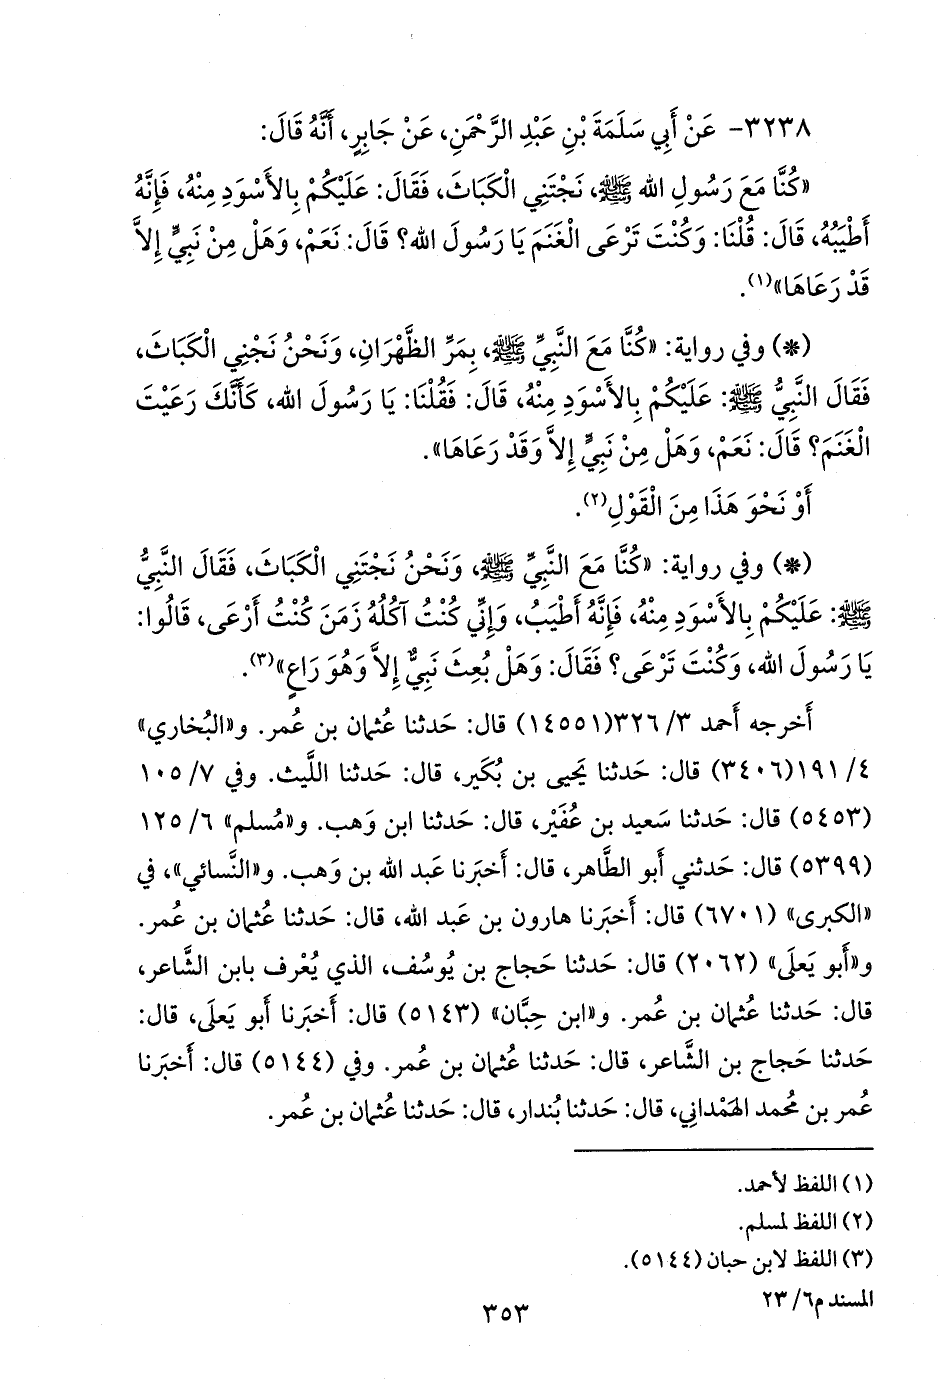 ٣٢٣٨- عَنْ أَبِي سَلَمَةَ بْنِ عَبْدِ الرَّحْمَنِ، عَنْ جَابِرٍ، أَنَّهُ قَالَ:
«كُنَّا مَعَ رَسُولِ الله ﷺ، نَجْتَنِي الْكَبَاثَ، فَقَالَ: عَلَيْكُمْ بِالأَسْوَدِ مِنْهُ، فَإِنَّهُ
أَطْيَبُهُ، قَالَ: قُلْنَا: وَكُنْتَ تَرْعَى الْغَنَمَ يَا رَسُولَ الله؟ قَالَ: نَعَمْ، وَهَلْ مِنْ نَبِيٍّ إِلاَّ
قَدْ رَعَاهَا»(١).
(*) وفي رواية: «كُنَّا مَعَ النَّبِيِّ ﷺ، بِمَرِّ الظَّهْرَانِ، وَنَحْنُ نَجْنِي الْكَبَاثَ،
فَقَالَ النَّبِيُّ ﷺ: عَلَيْكُمْ بِالأَسْوَدِ مِنْهُ، قَالَ: فَقُلْنَا: يَا رَسُولَ الله، كَأَنَّكَ رَعَيْتَ
الْغَنَمَ؟ قَالَ: نَعَمْ، وَهَلْ مِنْ نَبِيٍّ إِلاَّ وَقَدْ رَعَاهَا».
أَوْ نَحْوَ هَذَا مِنَ الْقَوْلِ(٢).
(*) وفي رواية: «كُنَّا مَعَ النَّبِيِّ ﷺ، وَنَحْنُ نَجْتَنِي الْكَبَاثَ، فَقَالَ النَّبِيُّ
ﷺ: عَلَيْكُمْ بِالأَسْوَدِ مِنْهُ، فَإِنَّهُ أَطْيَبُ، وَإِنِّي كُنْتُ آكُلُهُ زَمَنَ كُنْتُ أَرْعَى، قَالُوا:
يَا رَسُولَ الله، وَكُنْتَ تَرْعَى؟ فَقَالَ: وَهَلْ بُعِثَ نَبِيٌّ إِلاَّ وَهُوَ رَاعٍ»(٣).
أَخرجه أَحمد ٣/ ٣٢٦(١٤٥٥١) قال: حَدثنا عُثمان بن عُمر. و«البُخاري»
٤/ ١٩١(٣٤٠٦) قال: حَدثنا يَحيى بن بُكَير، قال: حَدثنا اللَّيث. وفي ٧/ ١٠٥
(٥٤٥٣) قال: حَدثنا سَعيد بن عُفَيْر، قال: حَدثنا ابن وَهب. و«مُسلم» ٦/ ١٢٥
(٥٣٩٩) قال: حَدثني أَبو الطَّاهر، قال: أَخبَرنا عَبد الله بن وَهب. و«النَّسائي»، في
«الكبرى» (٦٧٠١) قال: أَخبَرنا هارون بن عَبد الله، قال: حَدثنا عُثمان بن عُمر.
و«أَبو يَعلَى» (٢٠٦٢) قال: حَدثنا حَجاج بن يُوسُف، الذي يُعْرف بابن الشَّاعر،
قال: حَدثنا عُثمان بن عُمر. و«ابن حِبَّان» (٥١٤٣) قال: أَخبَرنا أَبو يَعلَى، قال:
حَدثنا حَجاج بن الشَّاعر، قال: حَدثنا عُثمان بن عُمر. وفي (٥١٤٤) قال: أَخبَرنا
عُمر بن مُحمد الهَمْداني، قال: حَدثنا بُندار، قال: حَدثنا عُثمان بن عُمر.
(١) اللفظ لأحمد.
(٢) اللفظ لمسلم.
(٣) اللفظ لابن حبان (٥١٤٤).
المسند م٦/ ٢٣
٣٥٣